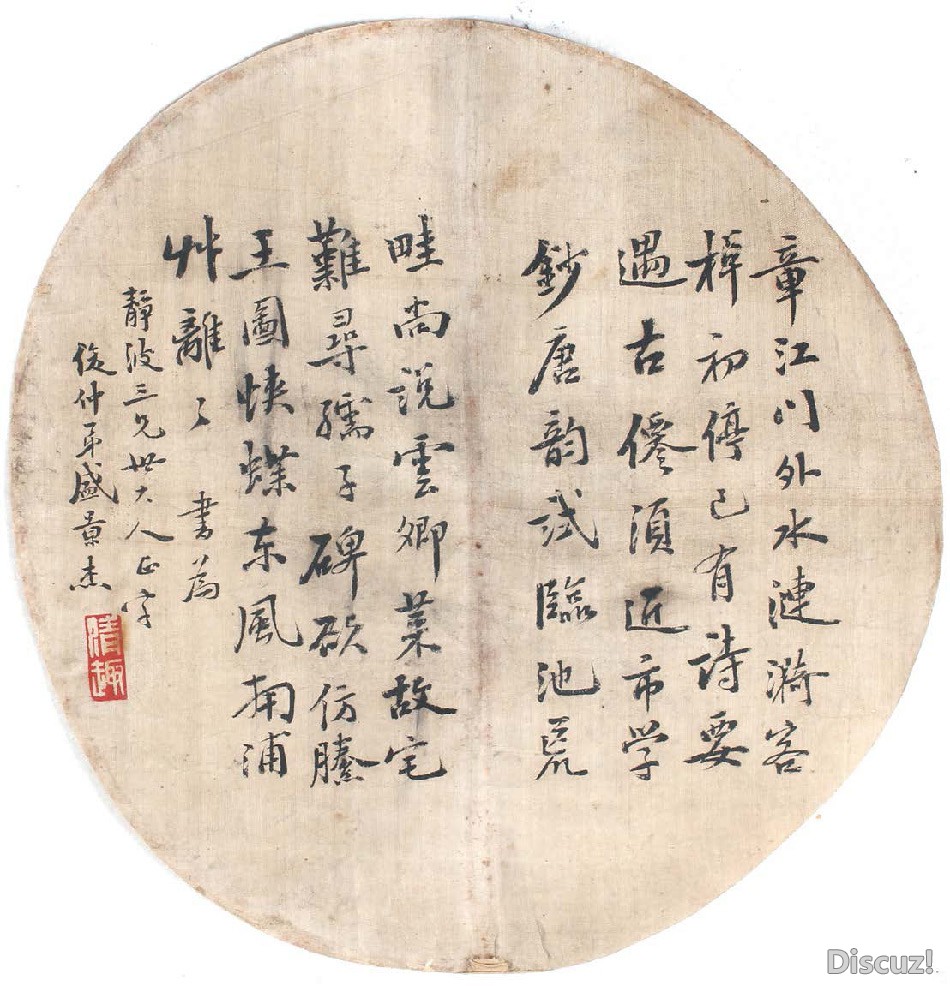 章江门外水漣漪客
棹初停已有詩要
遇古僊須近市学
鈔唐韵試臨池荒
畦尚說雲卿菜故宅
難尋孺子碑欲仿滕
王圖蛺蝶东風南浦
艸離〻 書為
靜波三兄世大人正字
仲弟盛景杰
清趣
Discuz!